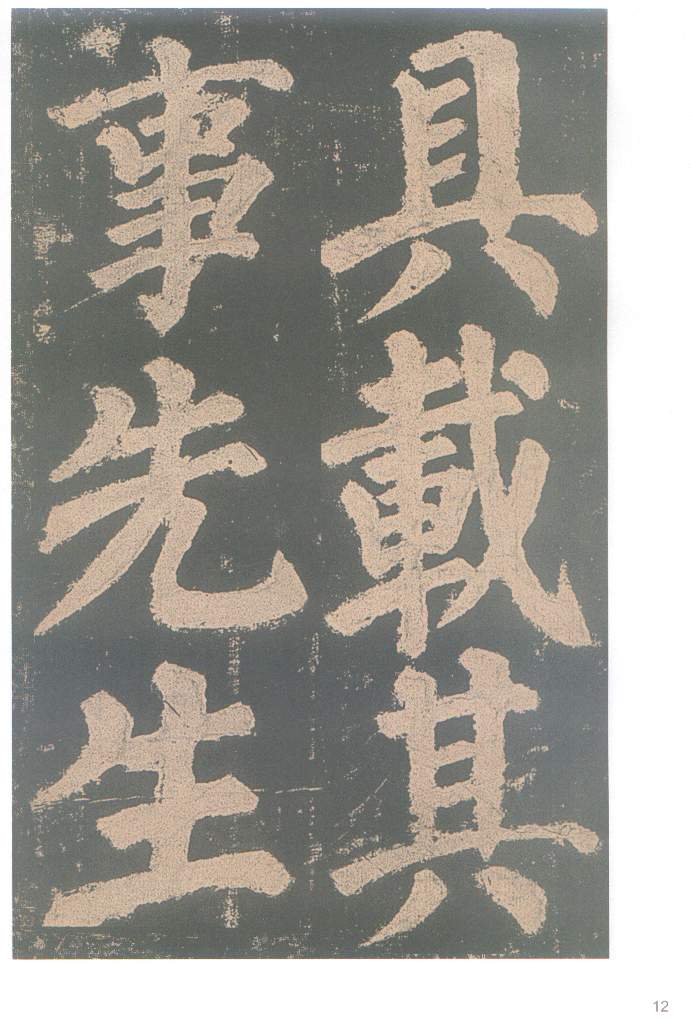 具載其
事先生
12